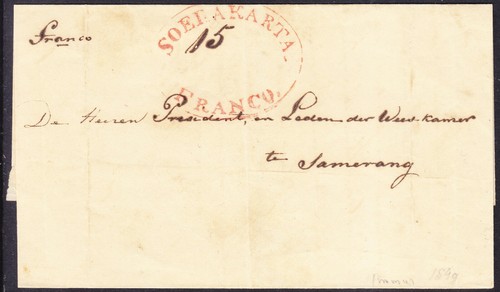 SOERAKARTA
Franco
15
FRANCO.
De Heeren President, en Leden der Weeskamer
te Samarang